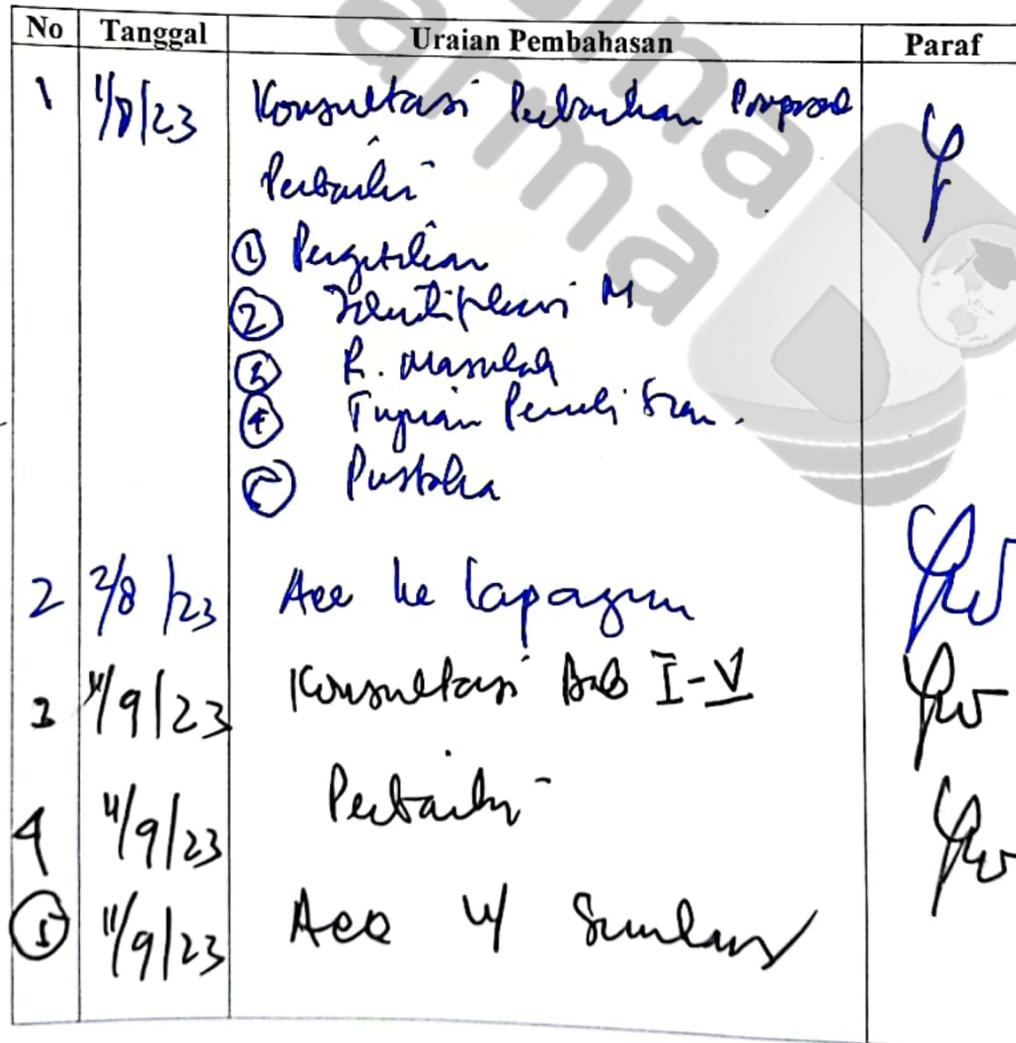 No Tanggal Uraian Pembahasan Paraf
1 1/8/23 Konsultasi Perbaikan Proposal
Perbaiki
① Pengetikan
② Identifikasi M
③ R. Masalah
④ Tujuan Penelitian.
⑤ Pustaka
2 2/8/23 Acc ke lapangan
3 /9/23 Konsultasi Bab I-V
4 /9/23 Perbaiki
⑤ 11/9/23 Acc u/
ina
arma